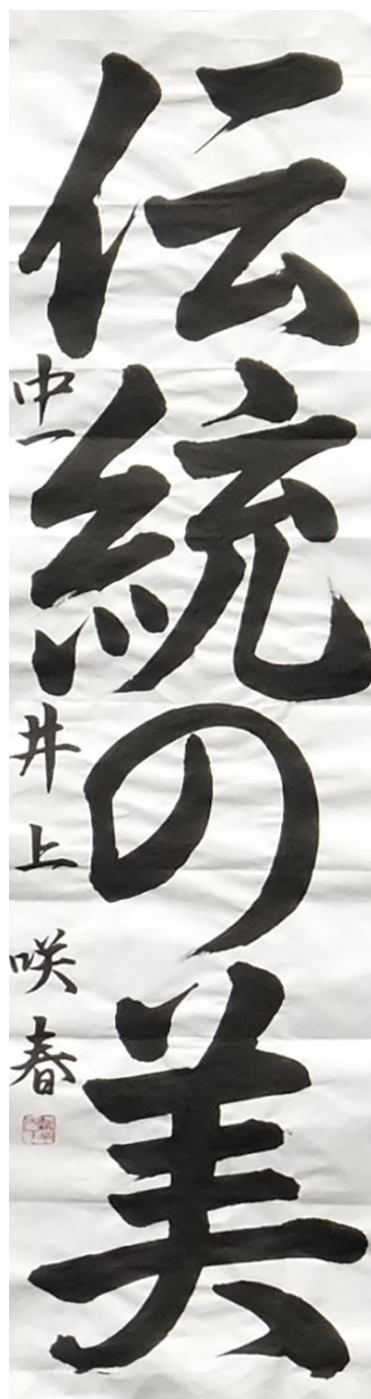 伝統の美
中一 井上 咲春